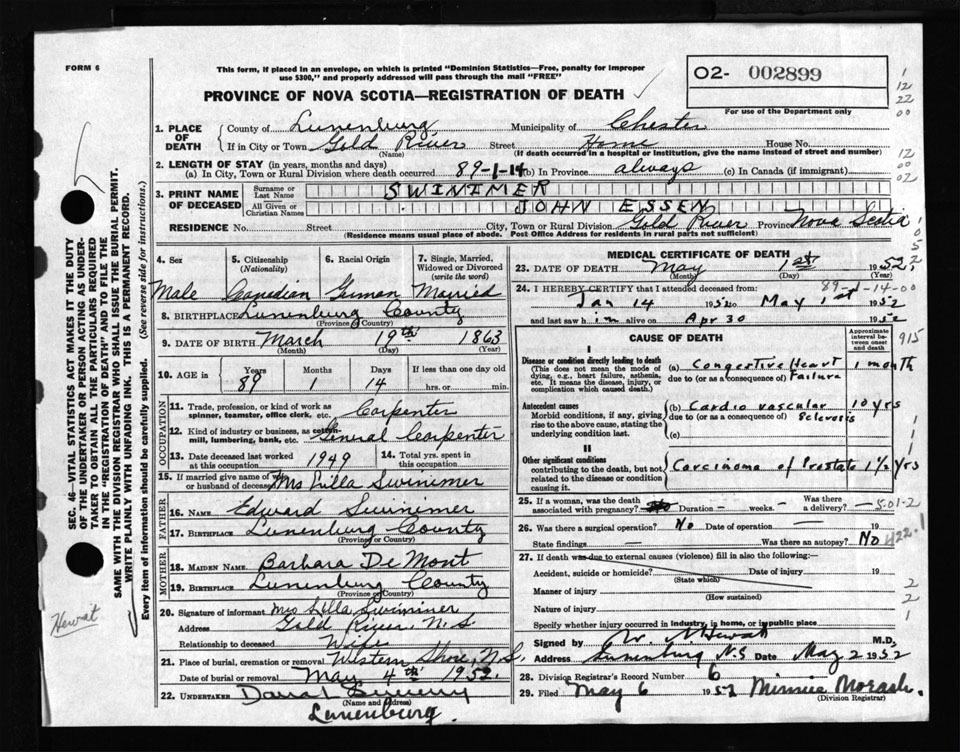 FORM 6
This form, if placed in an envelope, on which is printed "Dominion Statistics—Free, penalty for improper
use $300," and properly addressed will pass through the mail "FREE"
O2- 002899
For use of the Department only
PROVINCE OF NOVA SCOTIA—REGISTRATION OF DEATH
1. PLACE OF DEATH
County of Lunenburg Municipality of Chester
If in City or Town Gold River Street Home House No.
(Name) (If death occurred in a hospital or institution, give the name instead of street and number)
2. LENGTH OF STAY (in years, months and days)
(a) In City, Town or Rural Division where death occurred 89-1-14 (b) In Province always (c) In Canada (if immigrant)
3. PRINT NAME OF DECEASED
Surname or Last Name SWINIMER
All Given or Christian Names JOHN ESSEN
RESIDENCE No. Street City, Town or Rural Division Gold River Province Nova Scotia
(Residence means usual place of abode. Post Office Address for residents in rural parts not sufficient)
4. Sex
Male
5. Citizenship
(Nationality)
Canadian
6. Racial Origin
German
7. Single, Married,
Widowed or Divorced
(write the word)
Married
8. BIRTHPLACE Lunenburg County
(Province or Country)
9. DATE OF BIRTH March 19th 1863
(Month) (Day) (Year)
10. AGE in Years Months Days If less than one day old
89 1 14 hrs. or min.
OCCUPATION
11. Trade, profession, or kind of work as
spinner, teamster, office clerk, etc. Carpenter
12. Kind of industry or business, as cotton-
mill, lumbering, bank, etc. General Carpenter
13. Date deceased last worked
at this occupation 1949
14. Total yrs. spent in
this occupation
15. If married give name of wife
or husband of deceased Mrs Lilla Swinimer
FATHER
16. Name Edward Swinimer
17. BIRTHPLACE Lunenburg County
(Province or Country)
MOTHER
18. MAIDEN NAME Barbara DeMont
19. BIRTHPLACE Lunenburg County
(Province or Country)
20. Signature of informant Mrs Lilla Swinimer
Address Gold River, N.S
Relationship to deceased Wife
21. Place of burial, cremation or removal Western Shore, N.S.
Date of burial or removal May 4th 1952
22. UNDERTAKER
(Name and Address)
Lunenburg.
MEDICAL CERTIFICATE OF DEATH
23. DATE OF DEATH May 1st 1952
(Month) (Day)
89-1-14-00
24. I HEREBY CERTIFY that I attended deceased from:
Jan 14 1952 to May 1st 1952
and last saw him alive on Apr 30 1952
CAUSE OF DEATH
Approximate
interval be-
tween onset
and death
915
I
Disease or condition directly leading to death
(This does not mean the mode of
dying, e.g., heart failure, asthenia,
etc. It means the disease, injury, or
complication which caused death.)
(a) Congestive Heart 1 month
due to (or as a consequence of) Failure
Antecedent causes
Morbid conditions, if any, giving
rise to the above cause, stating the
underlying condition last.
(b) Cardio vascular 10 yrs
due to (or as a consequence of) Sclerosis
(c)
II
Other significant conditions
contributing to the death, but not
related to the disease or condition
causing it.
Carcinoma of Prostate 1½ yrs
25. If a woman, was the death
associated with pregnancy? Duration – weeks. – Was there
a delivery? –
26. Was there a surgical operation? No Date of operation — 19
State findings — Was there an autopsy? No
422.1
27. If death was due to external causes (violence) fill in also the following:—
Accident, suicide or homicide? Date of injury 19
(State which)
Manner of injury
(How sustained)
Nature of injury
Specify whether injury occurred in industry, in home, or in public place
Signed by Hewat M.D.
Address Lunenburg N.S Date May 2 1952
28. Division Registrar's Record Number 6
29. Filed May 6 1952 Minnie Morash.
(Division Registrar)
SEC. 46—VITAL STATISTICS ACT MAKES IT THE DUTY
OF THE UNDERTAKER OR PERSON ACTING AS UNDER-
TAKER TO OBTAIN ALL THE PARTICULARS REQUIRED
IN THE "REGISTRATION OF DEATH" AND TO FILE THE
SAME WITH THE DIVISION REGISTRAR WHO SHALL ISSUE THE BURIAL PERMIT.
WRITE PLAINLY WITH UNFADING INK. THIS IS A PERMANENT RECORD.
Every item of information should be carefully supplied. (See reverse side for instructions.)
Hewat